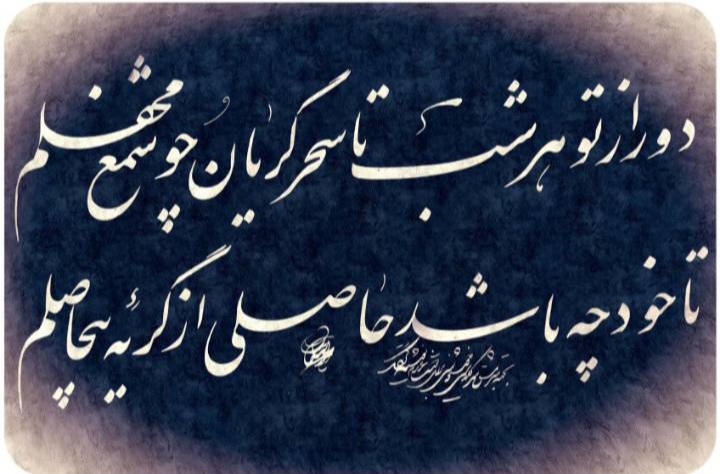 دور از تو هر شب تا سحر گریان چو شمع محفلم
تا خود چه باشد حاصلی از گریهٔ بیحاصلم